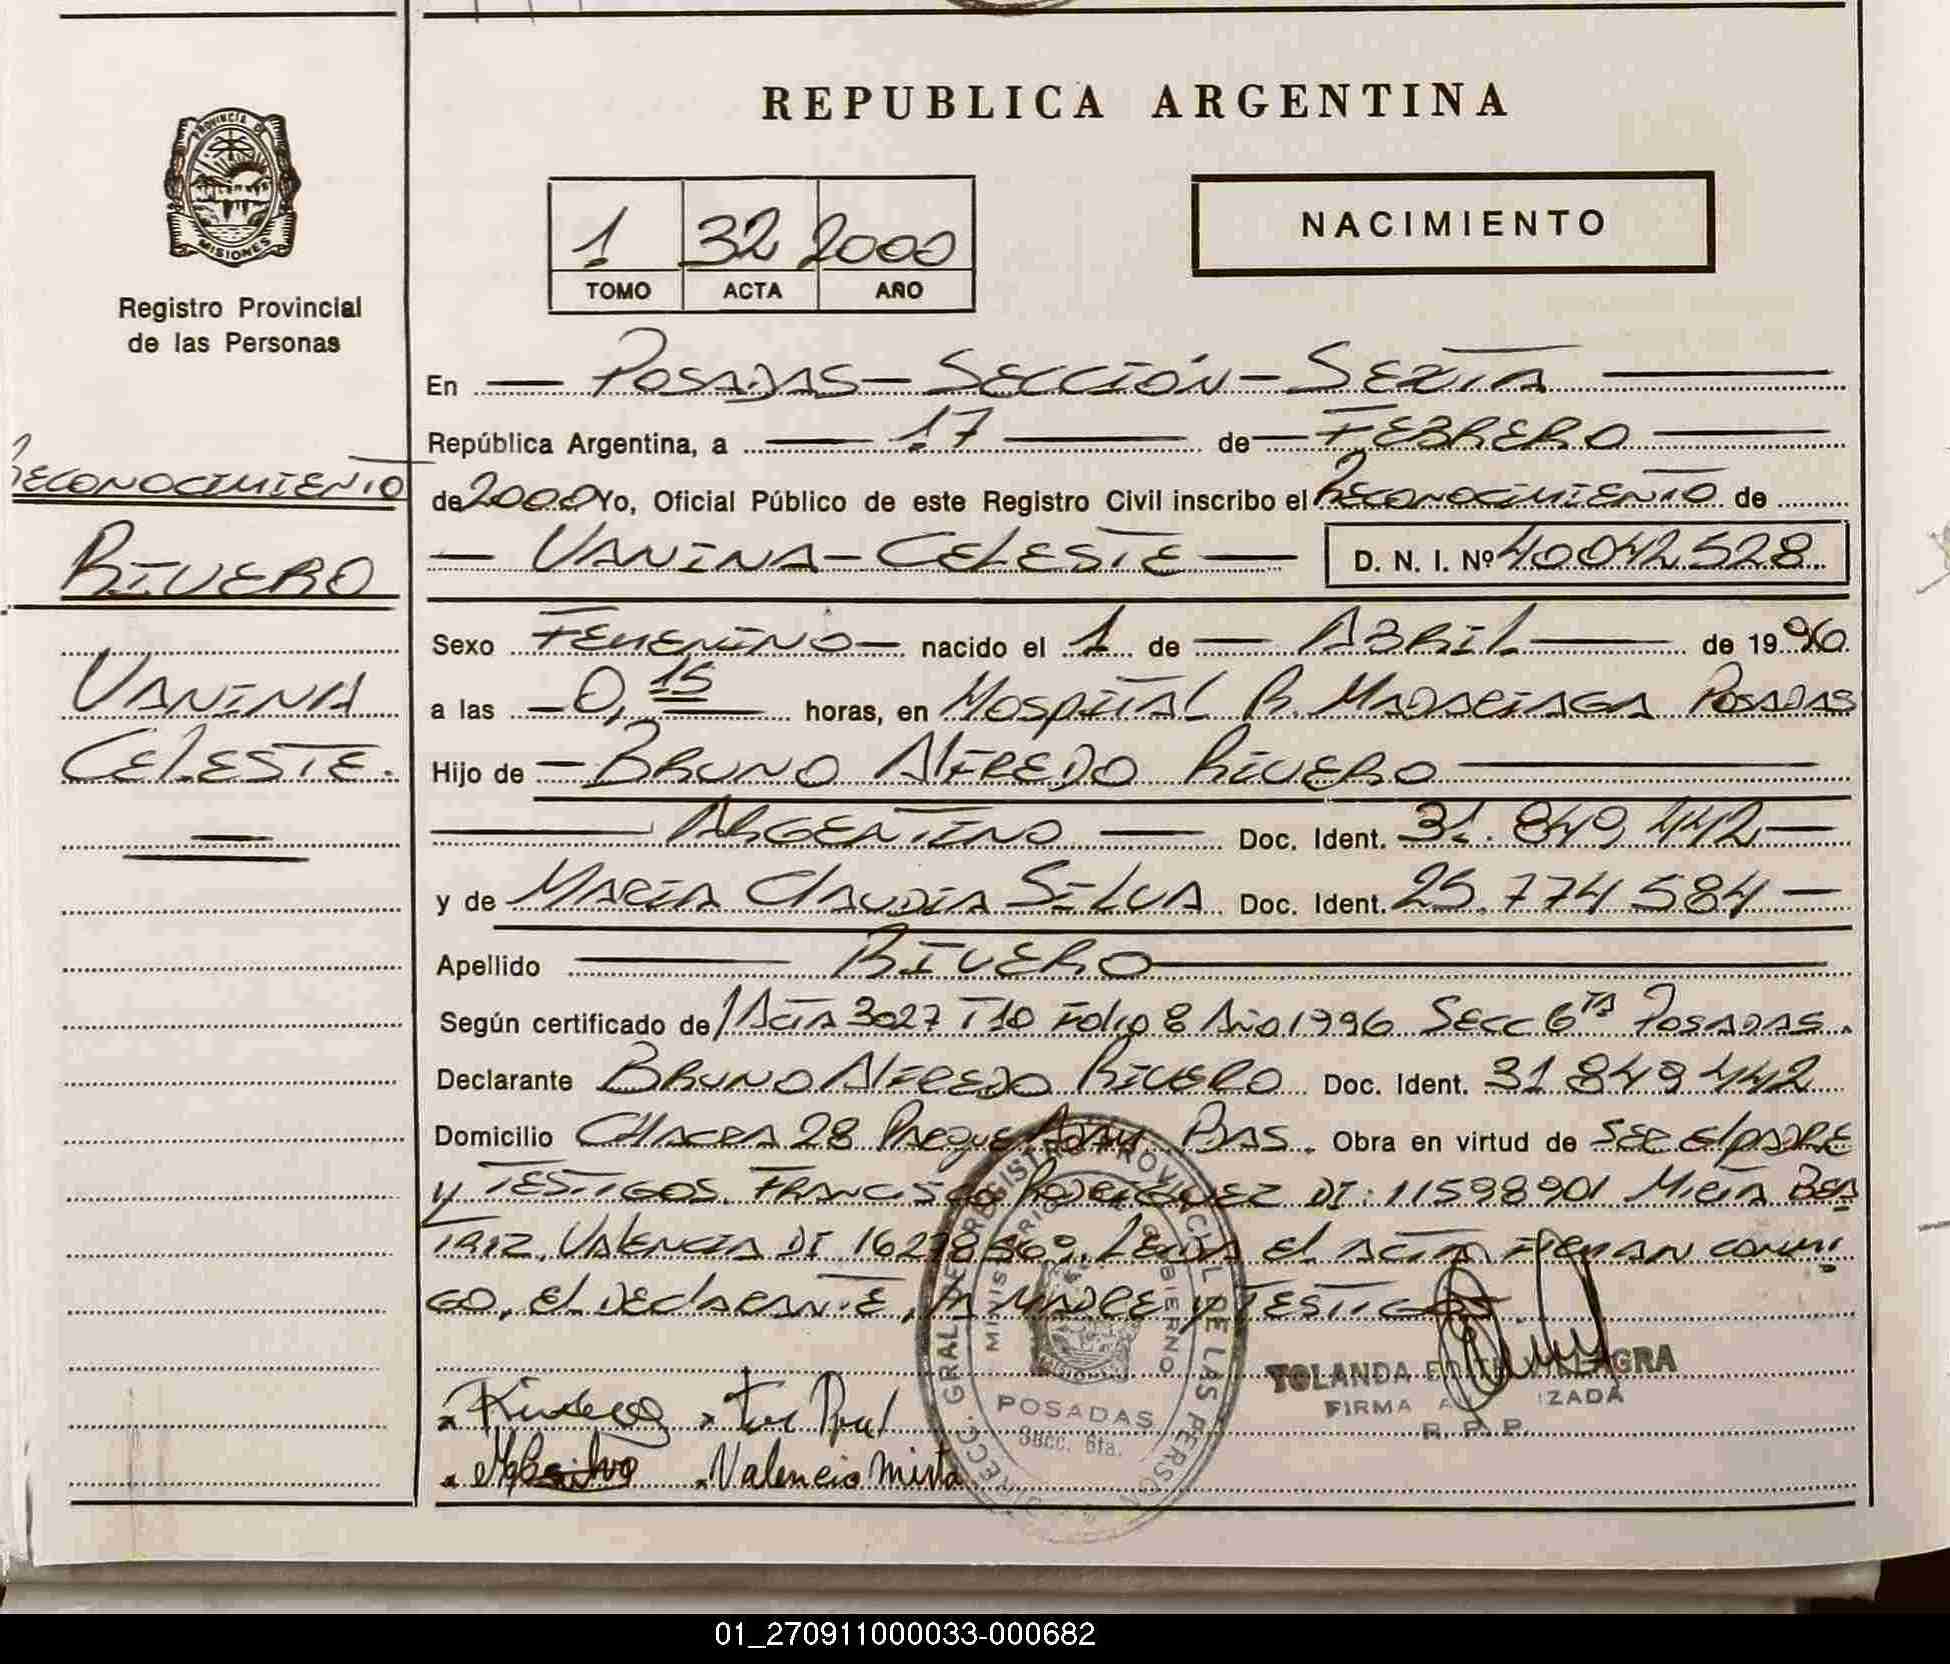 REPUBLICA ARGENTINA
PROVINCIA DE
MISIONES
Registro Provincial
de las Personas
1 32 2000
TOMO ACTA AÑO
NACIMIENTO
RECONOCIMIENTO
RIVERO
VANINA
CELESTE.
En POSADAS - SECCIÓN - SEXTA
República Argentina, a 17 de FEBRERO
de 2000 Yo, Oficial Público de este Registro Civil inscribo el RECONOCIMIENTO de
VANINA - CELESTE D. N. I. Nº 40042528
Sexo FEMENINO nacido el 1 de ABRIL de 1996
a las 0,15 horas, en HOSPITAL R. MADARIAGA POSADAS
Hijo de BRUNO ALFREDO RIVERO
ARGENTINO Doc. Ident. 31.849.442
y de MARIA CLAUDIA SILVA Doc. Ident. 25.774 584
Apellido RIVERO
Según certificado de ACTA 3027 T10 Folio 8 Año 1996 SECC 6TA POSADAS.
Declarante BRUNO ALFREDO RIVERO Doc. Ident. 31 849 442
Domicilio CHACRA 28 PARQUE ADAM PDAS. Obra en virtud de SER EL PADRE
Y TESTIGOS. FRANCISCO RODRIGUEZ DI: 11598901 MIRTA BEA
TRIZ VALENCIA DI 16278569. LEIDA EL ACTA FIRMAN CONMI
GO, EL DECLARANTE, LA MADRE Y TESTIGOS
YOLANDA
FIRMA
R. P. P.
Valencia Mirta
DIRECC. GRAL. DE REGISTRO PROVINCIAL DE LAS PERSONAS
MINISTERIO DE GOBIERNO
POSADAS
Secc. 6ta.
01_270911000033-000682